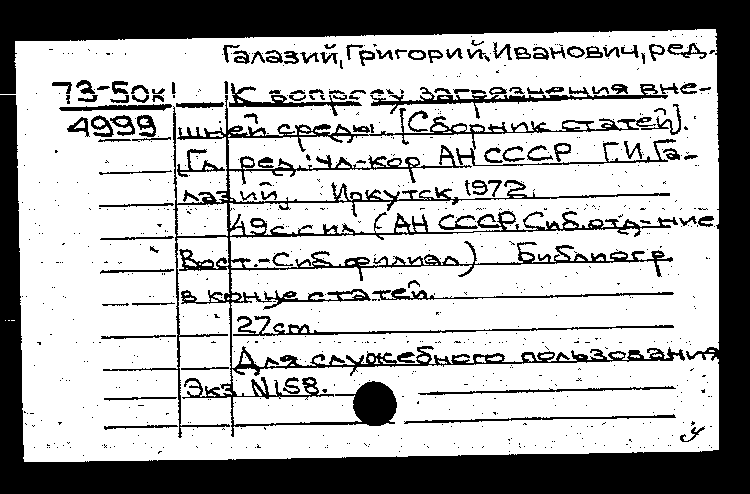 Галазий, Григорий, Иванович, ред.
73-50к К вопросу загрязнения вне-
4999 шней среды. [Сборник статей].
[Гл. ред.: чл-кор. АН СССР Г.И. Га-
лазий]. Иркутск, 1972.
49с. с ил. (АН СССР. Сиб. отд-ние.
Вост.-Сиб. филиал) Библиогр.
в конце статей.
27см.
Для служебного пользования
Экз. N158.